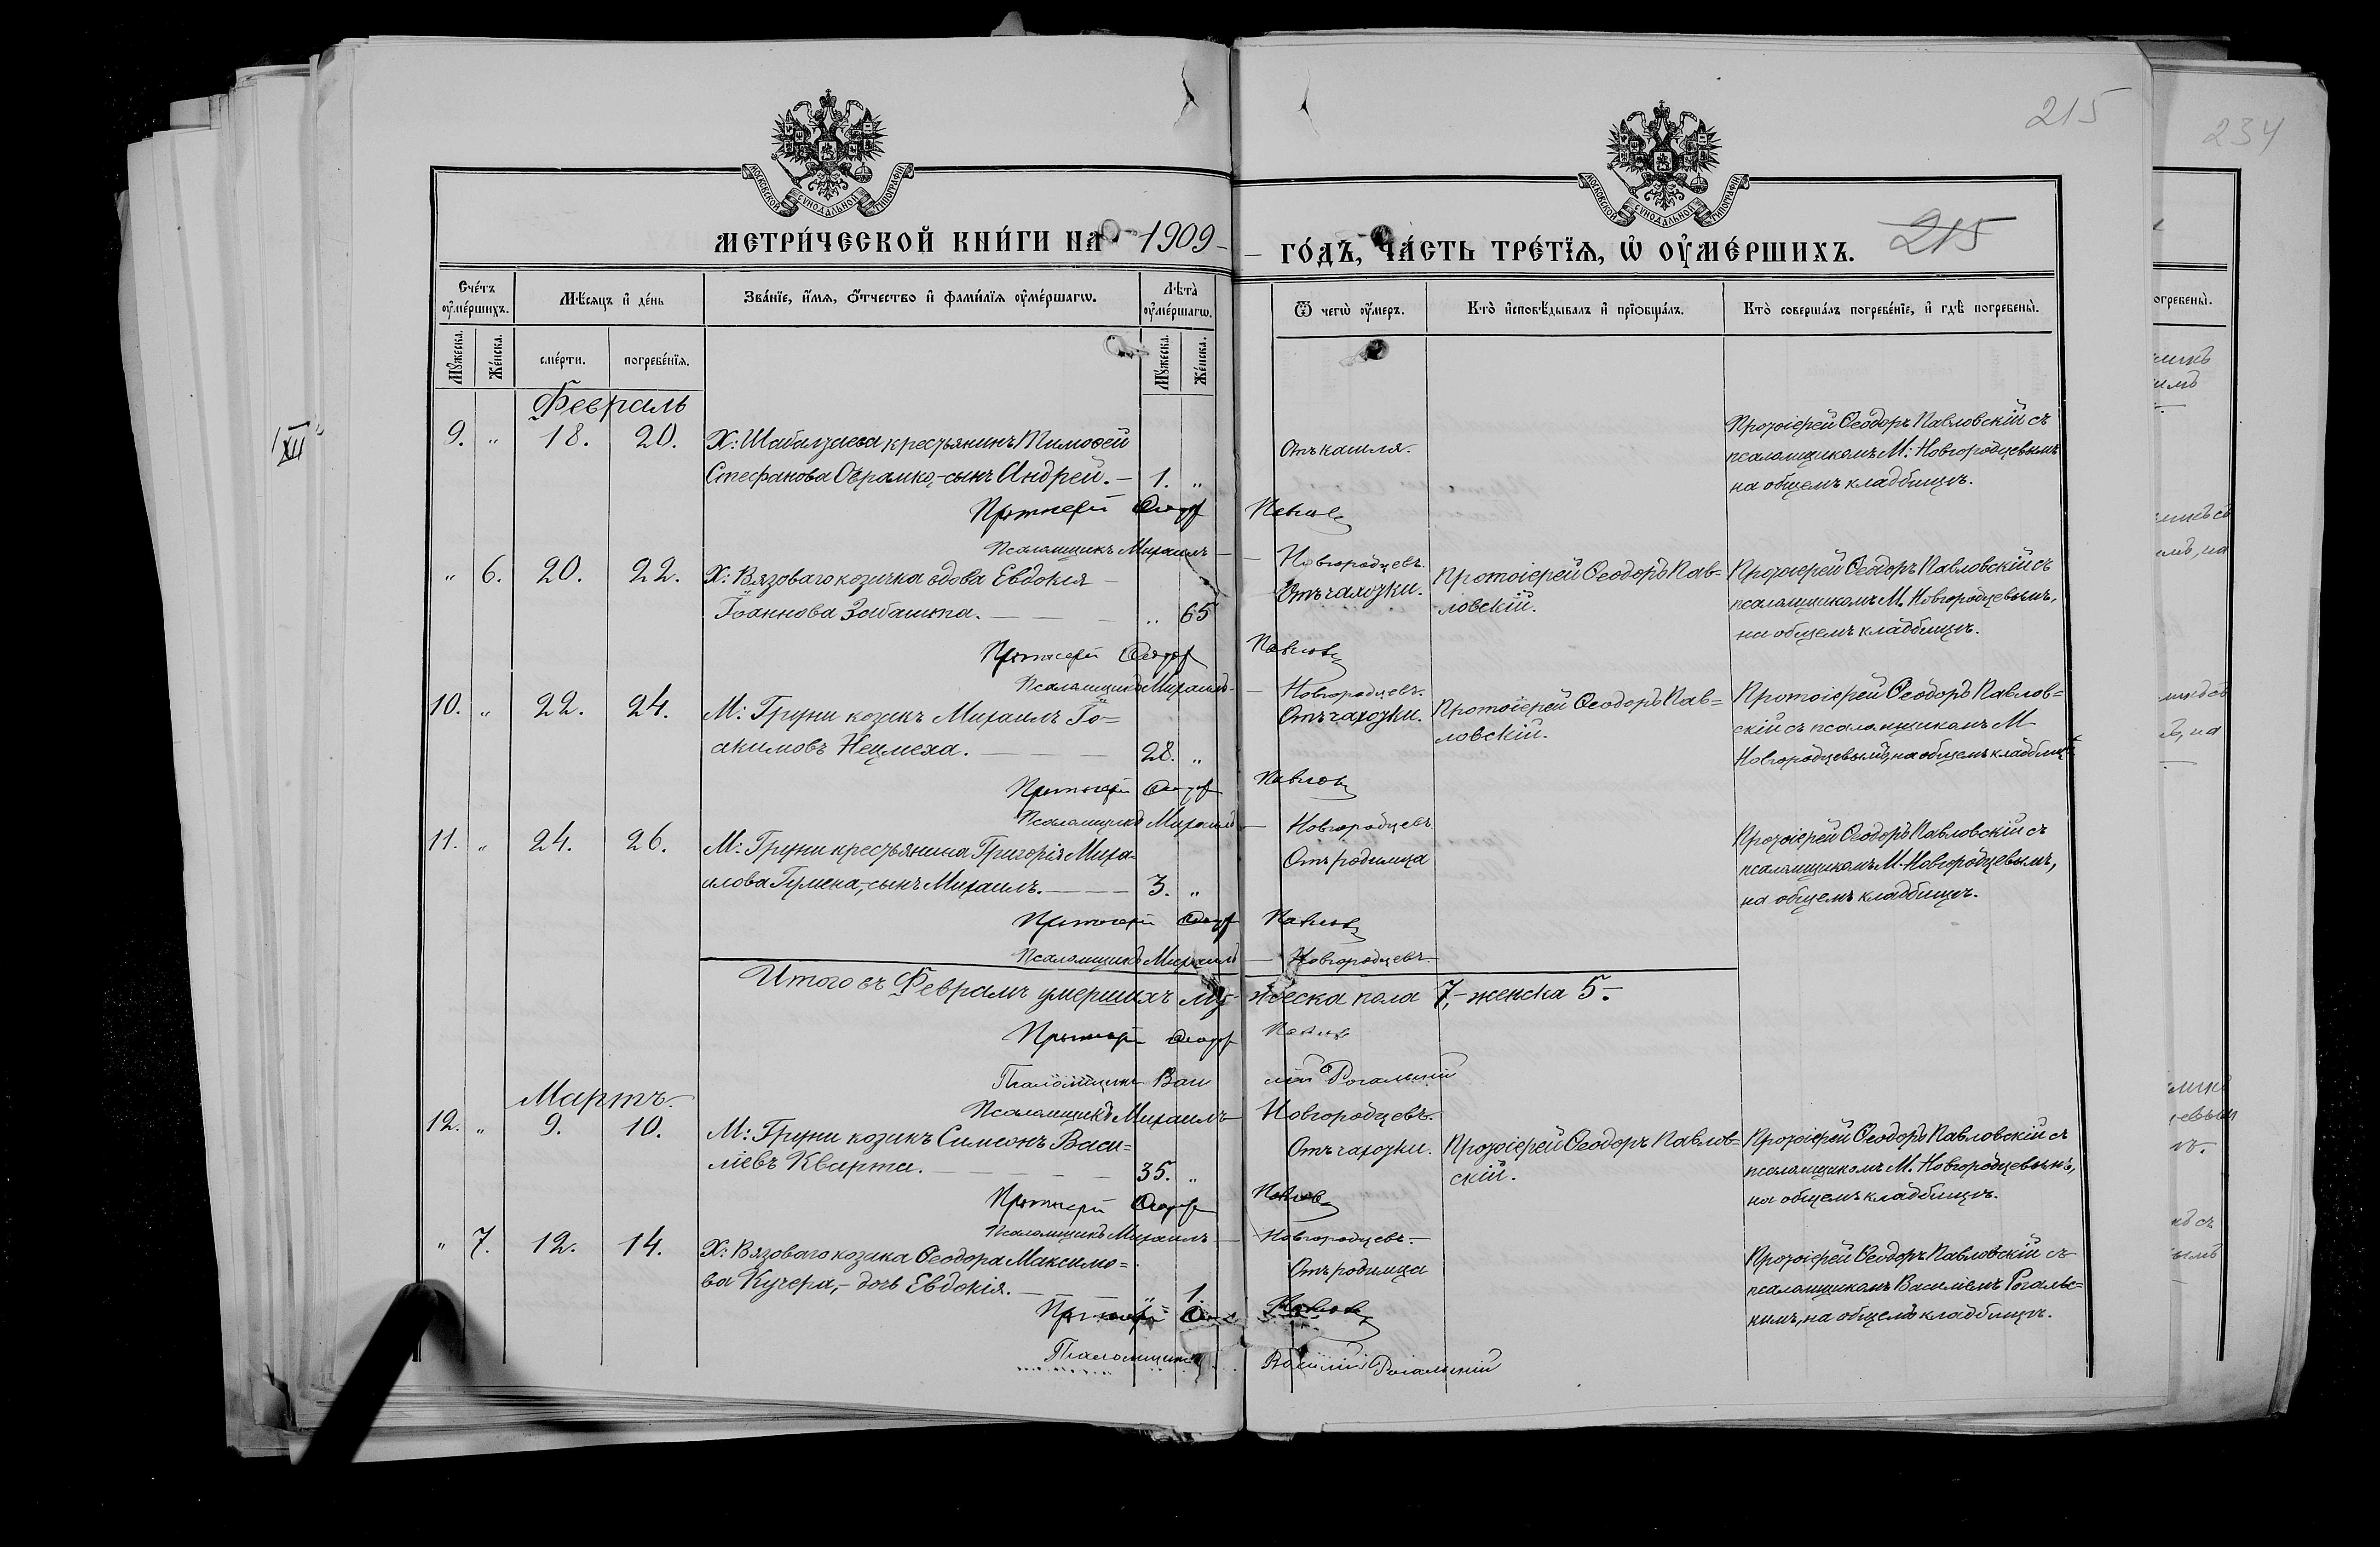 215
234
МОСКОВСКОЙ СУНОДАЛЬНОЙ ТИПОГРАФІИ
МОСКОВСКОЙ СУНОДАЛЬНОЙ ТИПОГРАФІИ
МЕТРИ́ЧЕСКОЙ КНИ́ГИ НА 1909
ГО́ДЪ, ЧА́СТЬ ТРЕ́ТЇѦ, Ѡ҆ ОУ҆МЕ́РШИХЪ.
215
Сче́тъ оу҆ме́ршихъ.
Мѣ́сѧцъ и҆ де́нь
Зва́нїе, и҆́мѧ, ѻ҆́тчество и҆ фами́лїѧ оу҆ме́ршагѡ.
Лѣта̀ оу҆ме́ршагѡ.
Ѿ чегѡ̀ оу҆́меръ.
Кто̀ и҆сповѣ́дывалъ и҆ прїѻбща́лъ.
Кто̀ соверша́лъ погребе́нїе, и҆ гдѣ̀ погребены̀.
Мꙋ́жеска.
Же́нска.
сме́рти.
погребе́нїѧ.
Мꙋ́жеска.
Же́нска.
XII
Февраль
9. " 18. 20. Х: Шабалтаева крестьянинъ Тимофей
Стефанова Аврамко,-сынъ Андрей. — 1. "
Отъ кашля.
Протоіерей Ѳеодоръ Павловскій съ
псаломщикомъ М: Новгородцевымъ
на общемъ кладбищѣ.
Протоіерей Ѳеодор Павловс
Псаломщикъ Михаилъ — Новгородцевъ.
" 6. 20. 22. Х: Вязоваго козачка вдова Евдокія
Іоаннова Забашта. — " 65
Отъ чахотки.
Протоіерей Ѳеодоръ Пав=
ловскій.
Протоіерей Ѳеодоръ Павловскій съ
псаломщикомъ М. Новгородцевымъ,
на общемъ кладбищѣ.
Протоіерей Ѳеодор Павловс
Псаломщикъ Михаилъ — Новгородцевъ.
10. " 22. 24. М: Груни козакъ Михаилъ Іо=
акимовъ Нецмеха. — 28. "
Отъ чахотки.
Протоіерей Ѳеодоръ Пав=
ловскій.
Протоіерей Ѳеодоръ Павлов=
скій съ псаломщикомъ М
Новгородцевымъ, на общемъ кладбищѣ
Протоіерей Ѳеодор Павловс
Псаломщикъ Михаилъ — Новгородцевъ
11. " 24. 26. М: Груни крестьянина Григорія Миха-
илова Гумена,-сынъ Михаилъ. — 3. "
Отъ родимца
Протоіерей Ѳеодоръ Павловскій съ
псаломщикомъ М. Новгородцевымъ,
на общемъ кладбищѣ.
Протоіерей Ѳеодор Павловс
Псаломщикъ Михаилъ — Новгородцевъ.
Итого въ Февралѣ умершихъ му- жеска пола 7,- женска 5.-
Протоіерей Ѳеодор Павловс
Псаломщикъ Василій Рогальскій
Псаломщикъ Михаилъ — Новгородцевъ.
Мартъ.
12. " 9. 10. М: Груни козакъ Симеонъ Васи=
ліевъ Кварта. — 35. "
Отъ чахотки.
Протоіерей Ѳеодоръ Павлов=
скій.
Протоіерей Ѳеодоръ Павловскій съ
псаломщикомъ М. Новгородцевымъ,
на общемъ кладбищѣ.
Протоіерей Ѳеодор Павловс
Псаломщикъ Михаилъ — Новгородцевъ.
" 7. 12. 14. Х: Вязоваго козака Ѳеодора Максимо=
ва Кучера,- дочь Евдокія. — " 1
Отъ родимца
Протоіерей Ѳеодоръ Павловскій съ
псаломщикомъ Василіемъ Рогальс=
кимъ, на общемъ кладбищѣ.
Протоіерей Ѳеодор Павловс
Псаломщикъ Василій Рогальскій